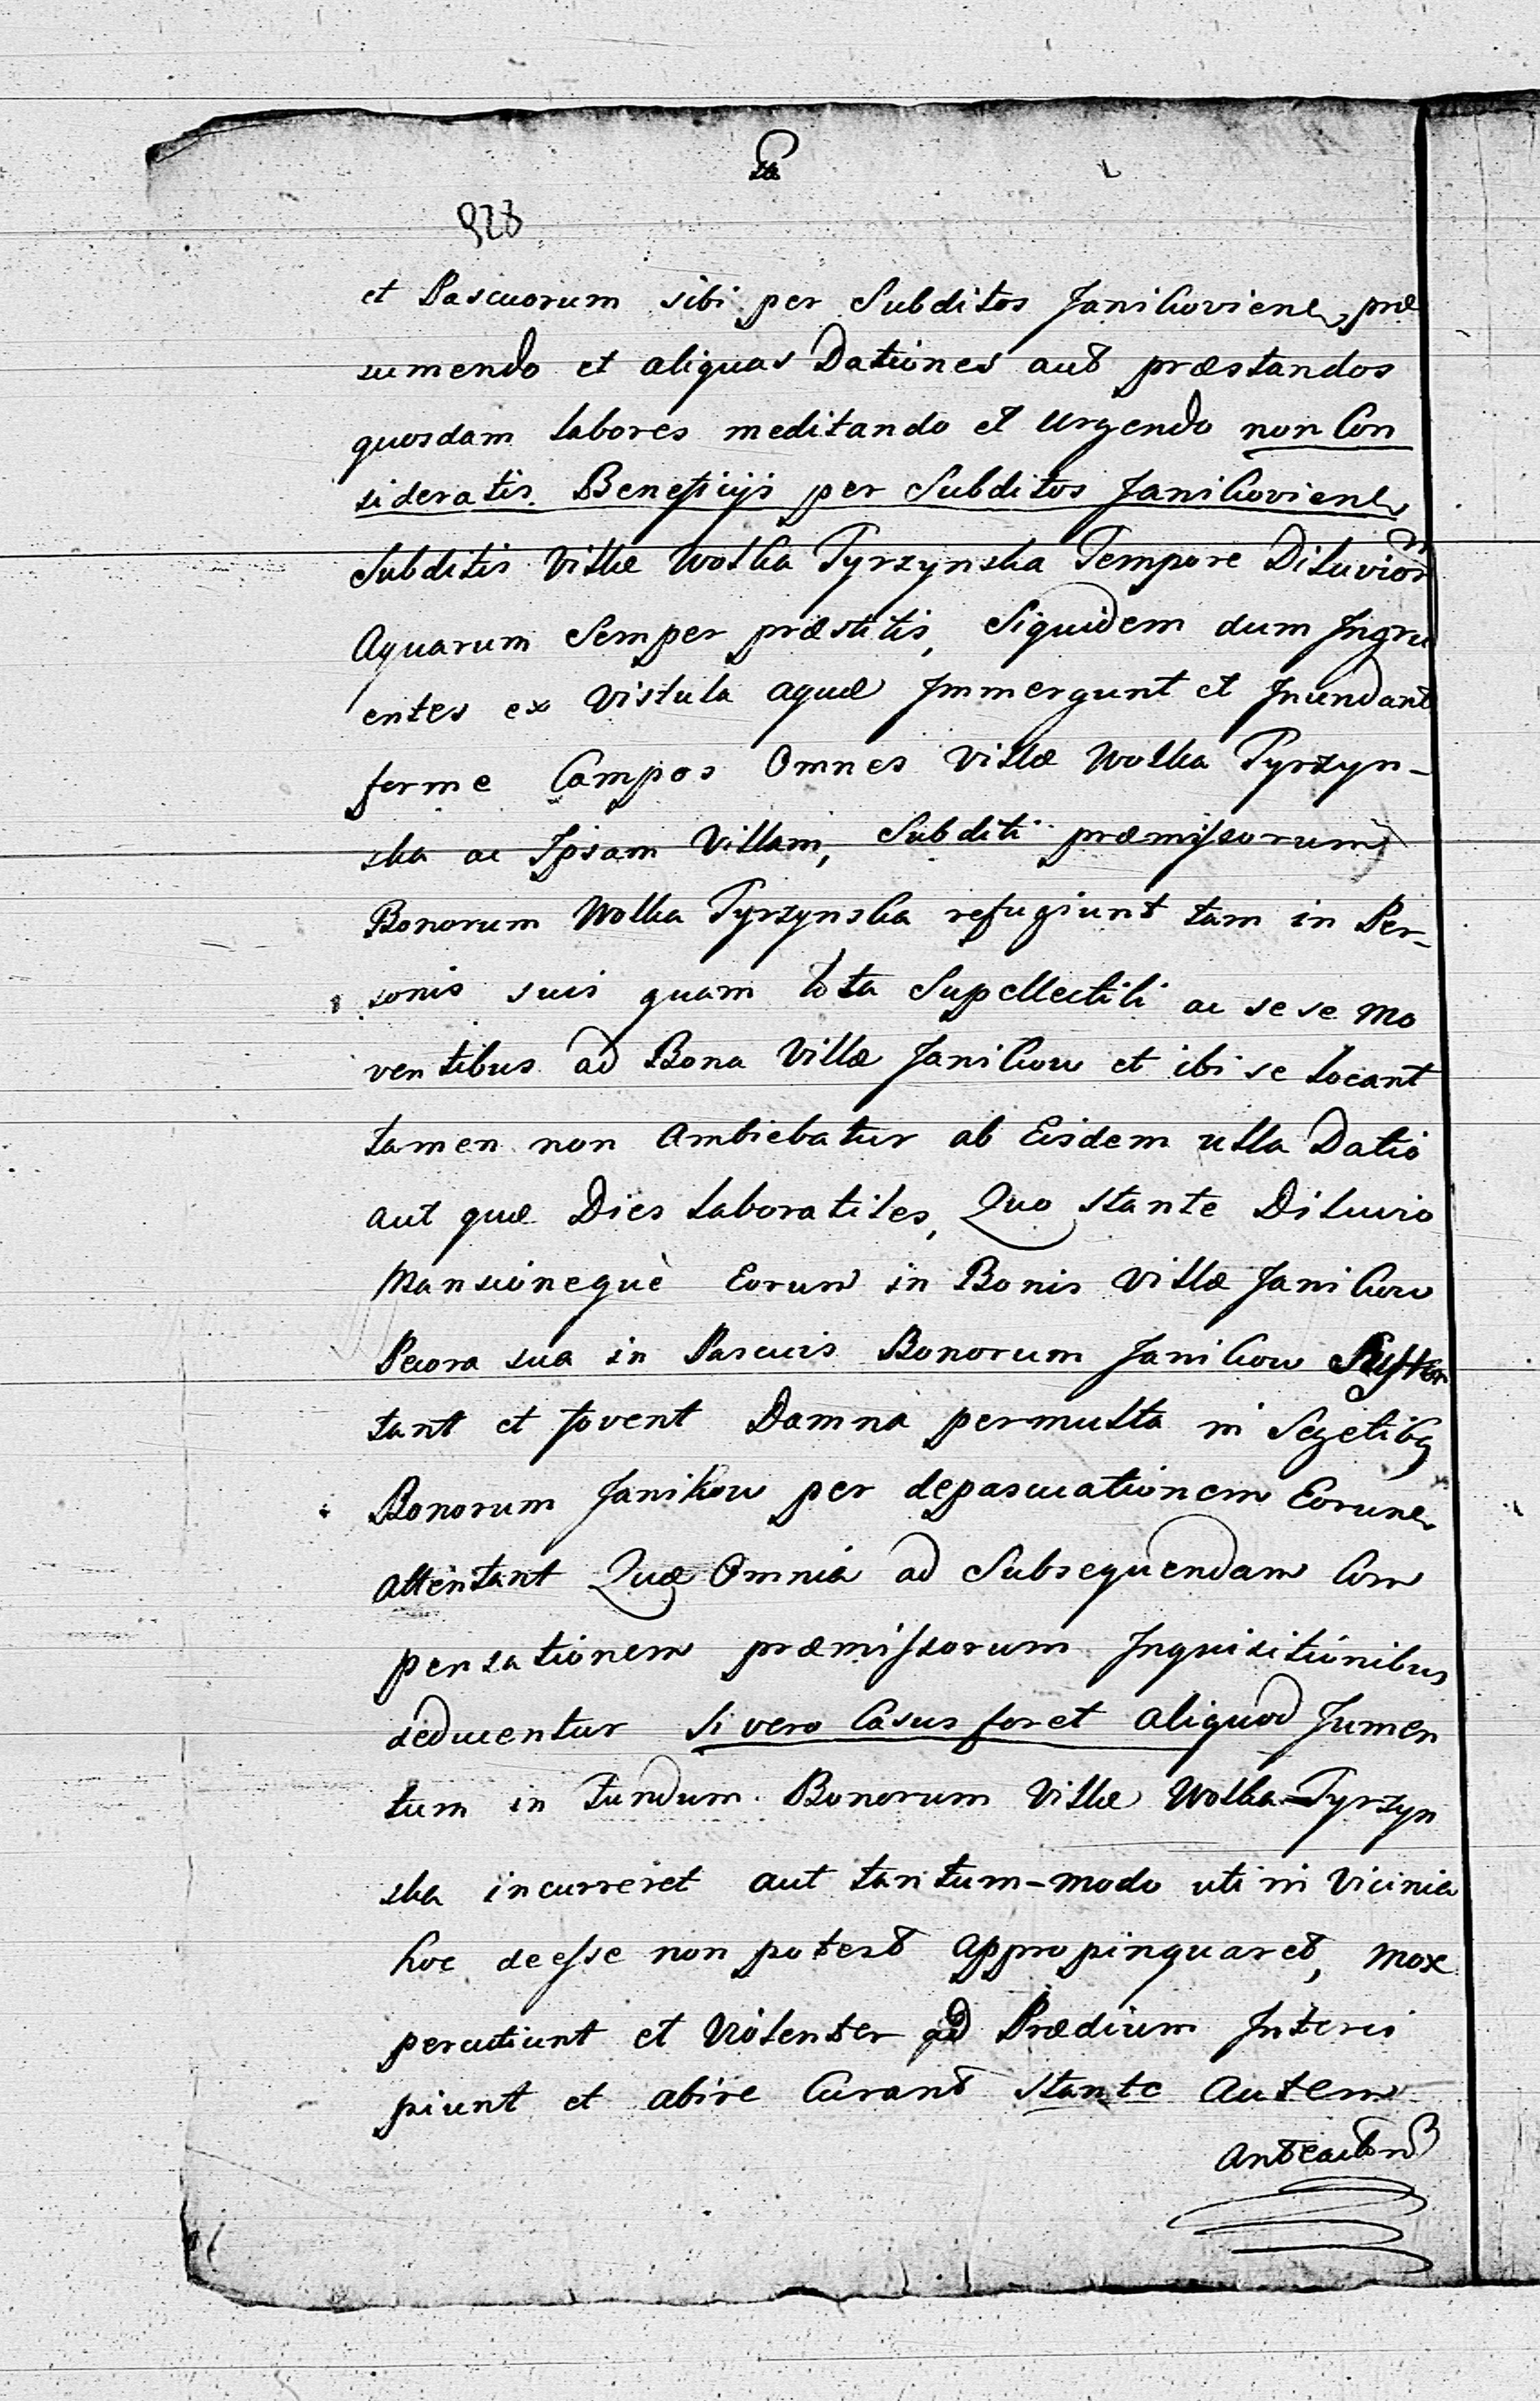 928
et Pascuorum sibi per Subditos Janikovien præ
sumendo et aliquas Dationes aut præstandos
quosdam labores meditando et Urgendo non Con
sideratis Beneficijs per Subditos Janikovien
Subditis Villæ Wolka Tyrzynska Tempore Diluviorũ
Aquarum Semper præstitis, Siquidem dum Ingru
entes ex Vistula aquæ Immergunt et Inundant
ferme Campos Omnes Villæ Wolka Tyrzyn-
ska ac Ipsam Villam, Subditi præmissorum
Bonorum Wolka Tyrzynska refugiunt tam in Per-
sonis suis quam tota Supellectili ac se se mo
ventibus ad Bona Villæ Janikow et ibi se locant
tamen non Ambiebatur ab Eisdem ulla Datio
aut quæ Dies laboratiles, Quo stante Diluvio
Mansionequè Eorum in Bonis Villæ Janikow
Pecora sua in Pascuis Bonorum Janikow Susten
tant et fovent Damna permulta in Segetibq
Bonorum Janikow per depascuationem Eorum
attentant Quæ Omnia ad Subsequendam Com
pensationem præmissorum Inquisitionibus
deducentur Si vero Casus foret aliquod Jumen
tum in Fundum Bonorum Villæ Wolka-Tyrzyn
ska incurreret aut tantum-modo uti in Vicinia
hoc deesse non potest appropinquaret, mox
percutiunt et Violenter ad Prædium Interci
piunt et abire Curant Stante Autem